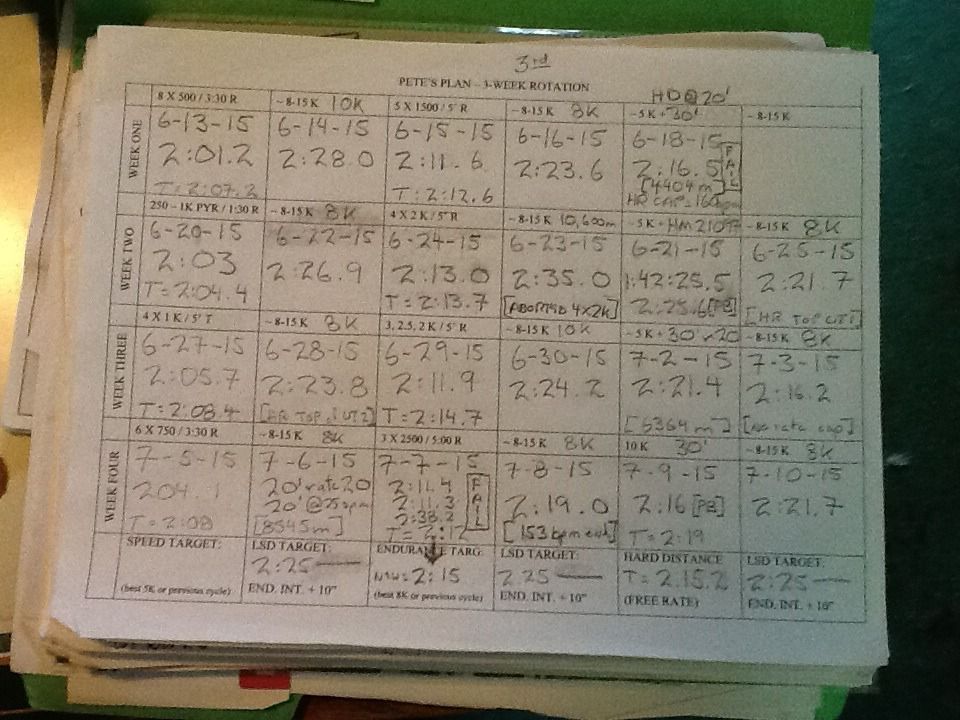 3rd
PETE'S PLAN – 3-WEEK ROTATION
HD@20'
8 X 500 / 3:30 R
~8-15 K 10K
5 X 1500 / 5' R
~8-15 K 8K
~5K + 30'
~8-15 K
WEEK ONE
6-13-15
2:01.2
T=2:07.2
6-14-15
2:28.0
6-15-15
2:11.6
T: 2:12.6
6-16-15
2:23.6
6-18-15
2:16.5
[4404m]
HR CAP=160bpm
FAIL
250 – 1K PYR / 1:30 R
~8-15K 8K
4 X 2K / 5' R
~8-15 K 10,600m
~5K + HM 21097
~8-15 K 8K
WEEK TWO
6-20-15
2:03
T=2:04.4
6-22-15
2:26.9
6-24-15
2:13.0
T=2:13.7
6-23-15
2:35.0
[ABORTED 4x2k]
6-21-15
1:42:25.5
2:25.6[PB]
6-25-15
2:21.7
[HR TOP UT1]
4 X 1 K / 5' T
~8-15 K 8K
3, 2.5, 2 K / 5' R
~8-15 K 10K
~5K + 30' r20
~8-15 K 8K
WEEK THREE
6-27-15
2:05.7
T=2:08.4
6-28-15
2:23.8
[HR TOP UT2]
6-29-15
2:11.9
T=2:14.7
6-30-15
2:24.2
7-2-15
2:21.4
[6364m]
7-3-15
2:16.2
[No rate cap]
6 X 750 / 3:30 R
~8-15 K 8K
3 X 2500 / 5:00 R
~8-15 K 8K
10 K 30'
~8-15 K 8K
WEEK FOUR
7-5-15
204.1
T=2:08
7-6-15
20' rate 20
20' @25spm
[8545m]
7-7-15
2:11.4
2:11.3
2:38.2
T=2:12
FAIL
7-8-15
2:19.0
[153bpm end]
7-9-15
2:16 [PB]
T=2:19
7-10-15
2:21.7
SPEED TARGET:
(best 5K or previous cycle)
LSD TARGET:
2:25
END. INT. + 10"
ENDURANCE TARG:
NEW=2:15
(best 8K or previous cycle)
LSD TARGET:
2:25
END. INT. + 10"
HARD DISTANCE
T=2.15.2
(FREE RATE)
LSD TARGET:
2:25
END. INT. + 10"